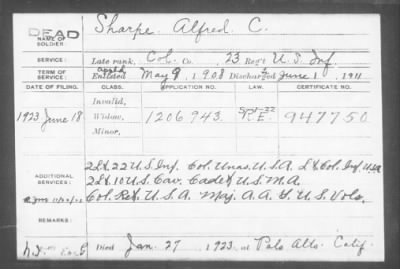 DEAD
NAME OF SOLDIER: Sharpe, Alfred C.
SERVICE: Late rank, Col. Co. 23 Reg't U.S. Inf.
TERM OF SERVICE: Enlisted May 9, 1908 Discharged June 1, 1911
DATE OF FILING. CLASS. APPLICATION NO. LAW. CERTIFICATE NO.
Invalid,
1923 June 18 Widow, 1206943 P.E. 947750
Minor,
ADDITIONAL SERVICES: 2Lt. 22 U.S. Inf. Col. Unas. U.S.A. Lt. Col. Inf. U.S.A.
2Lt. 10 U.S. Cav. Cadet U.S.M.A.
Col. Ret. U.S.A. Maj. A.A.G. U.S. Vols.
Died Jan. 27, 1923, at Palo Alto Calif.